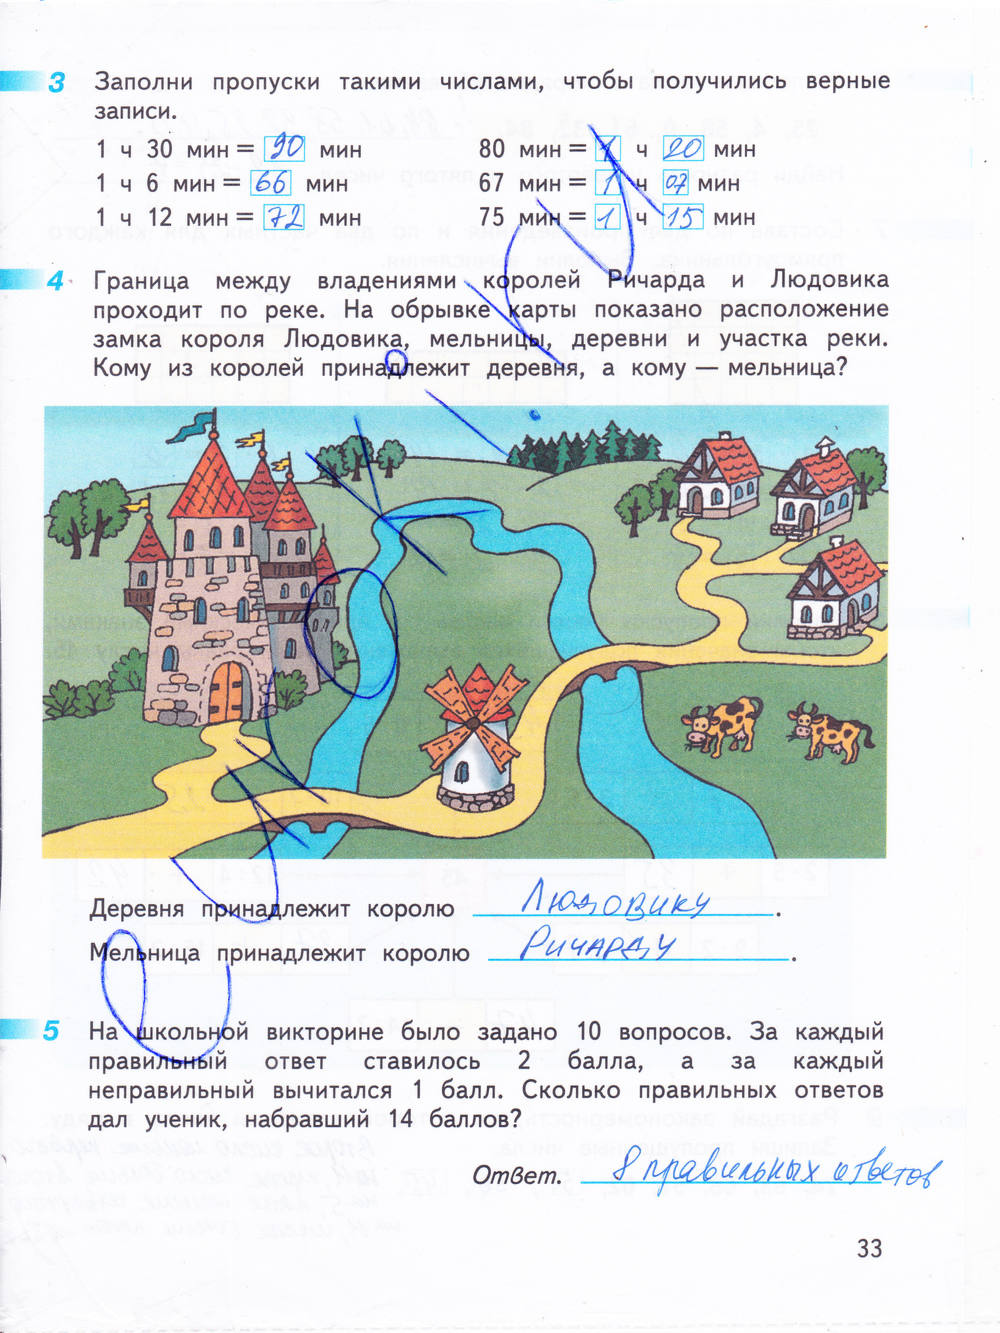 3 Заполни пропуски такими числами, чтобы получились верные
записи.
1 ч 30 мин = 90 мин
80 мин = 1 ч 20 мин
1 ч 6 мин = 66 мин
67 мин = 1 ч 07 мин
1 ч 12 мин = 72 мин
75 мин = 1 ч 15 мин
4 Граница между владениями королей Ричарда и Людовика
проходит по реке. На обрывке карты показано расположение
замка короля Людовика, мельницы, деревни и участка реки.
Кому из королей принадлежит деревня, а кому — мельница?
Деревня принадлежит королю Людовику.
Мельница принадлежит королю Ричарду.
5 На школьной викторине было задано 10 вопросов. За каждый
правильный ответ ставилось 2 балла, а за каждый
неправильный вычитался 1 балл. Сколько правильных ответов
дал ученик, набравший 14 баллов?
Ответ. 8 правильных ответов
33